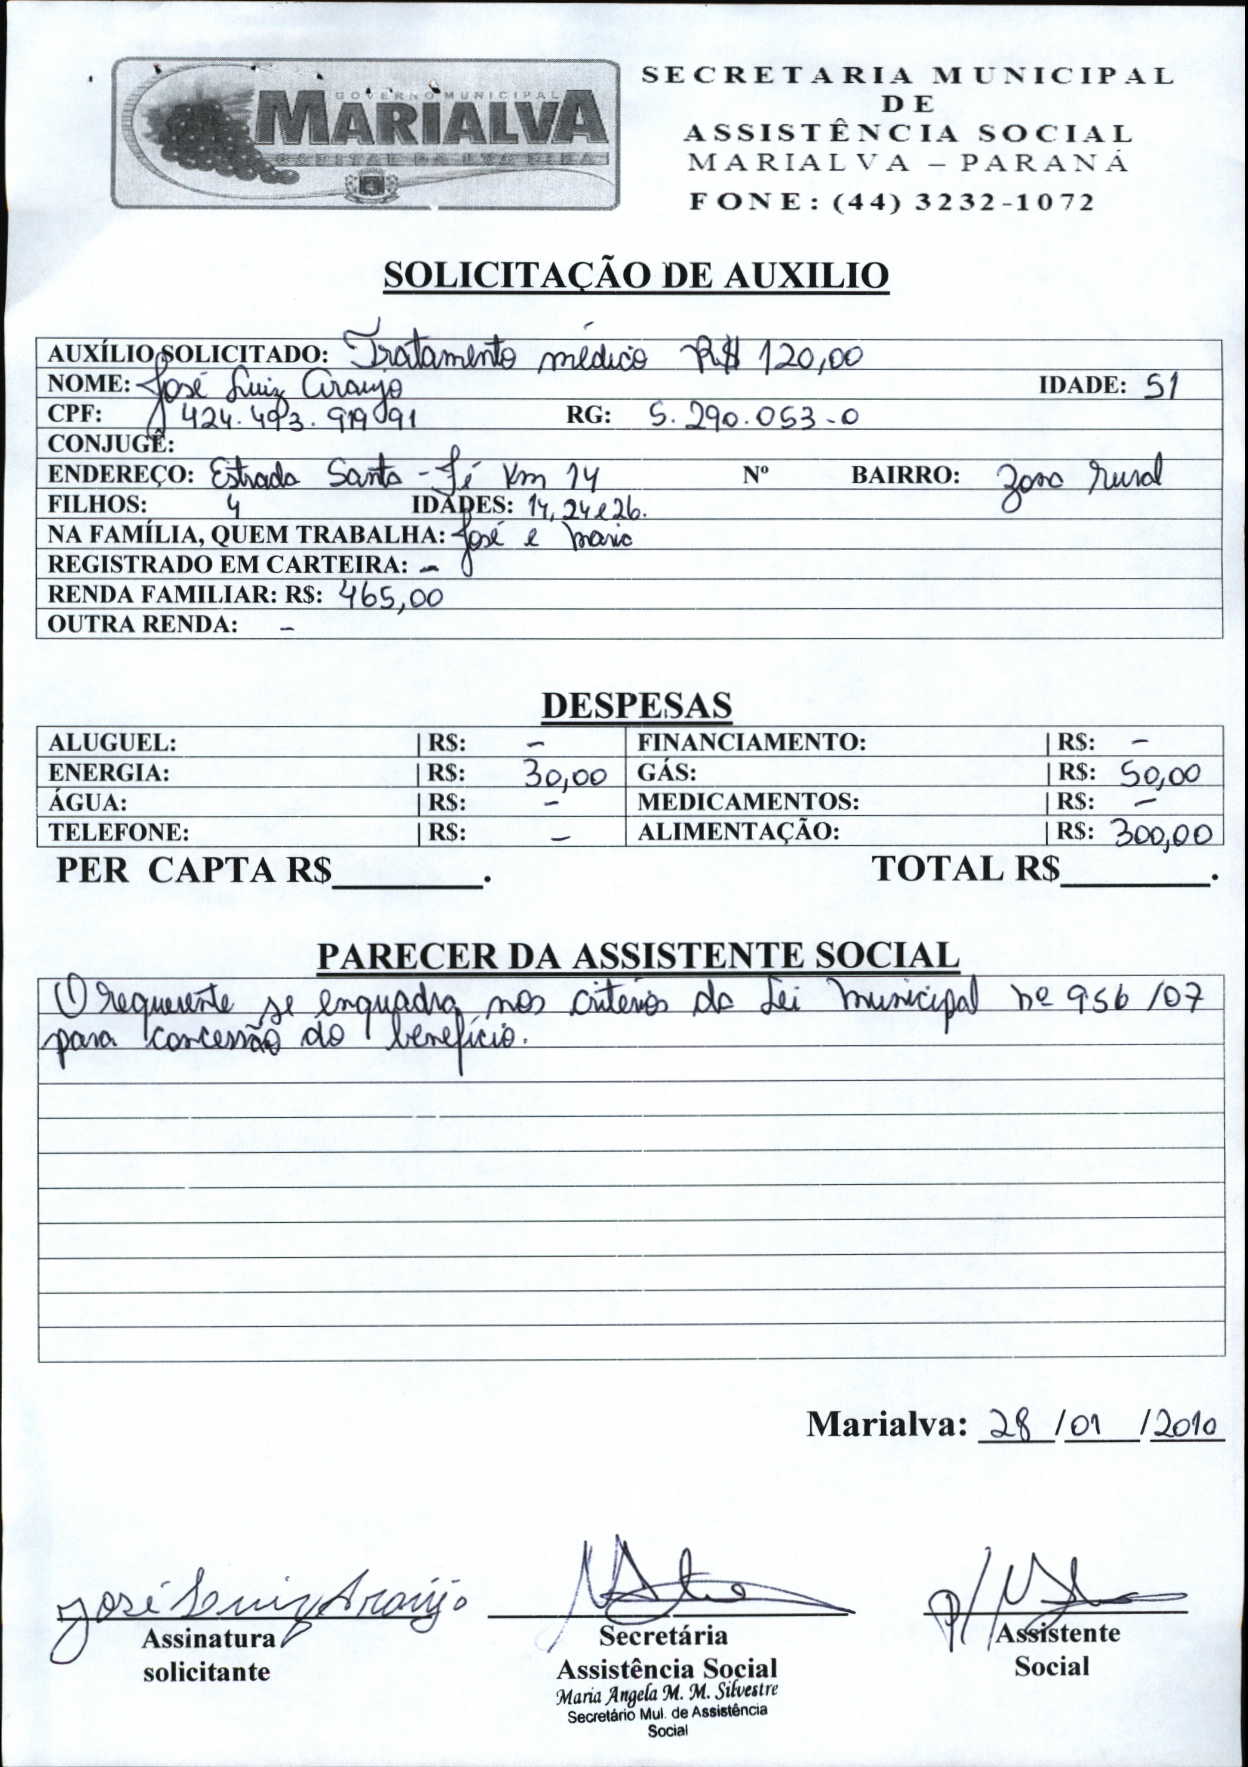 GOVERNO MUNICIPAL
MARIALVA
CAPITAL DA UVA FINA
SECRETARIA MUNICIPAL
DE
ASSISTÊNCIA SOCIAL
MARIALVA – PARANÁ
FONE: (44) 3232-1072
SOLICITAÇÃO DE AUXILIO
AUXÍLIO SOLICITADO: Tratamento médico R$ 120,00
NOME: José Luiz Araujo IDADE: 51
CPF: 424.493.919 91 RG: 5.290.053-0
CONJUGÊ:
ENDEREÇO: Estrada Santa-Fé Km 14 Nº BAIRRO: Zona Rural
FILHOS: 4 IDADES: 14, 24 e 26.
NA FAMÍLIA, QUEM TRABALHA: José e Maria
REGISTRADO EM CARTEIRA: -
RENDA FAMILIAR: R$: 465,00
OUTRA RENDA: -
DESPESAS
ALUGUEL: | R$: - FINANCIAMENTO: | R$: -
ENERGIA: | R$: 30,00 GÁS: | R$: 50,00
ÁGUA: | R$: - MEDICAMENTOS: | R$: -
TELEFONE: | R$: - ALIMENTAÇÃO: | R$: 300,00
PER CAPTA R$________. TOTAL R$________.
PARECER DA ASSISTENTE SOCIAL
O requerente se enquadra nos critérios da Lei Municipal nº 956/07
para concessão do benefício.
Marialva: 28/01/2010
José Luiz Araújo
Assinatura
solicitante
Secretária
Assistência Social
Maria Angela M. M. Silvestre
Secretário Mul. de Assistência
Social
p/
Assistente
Social